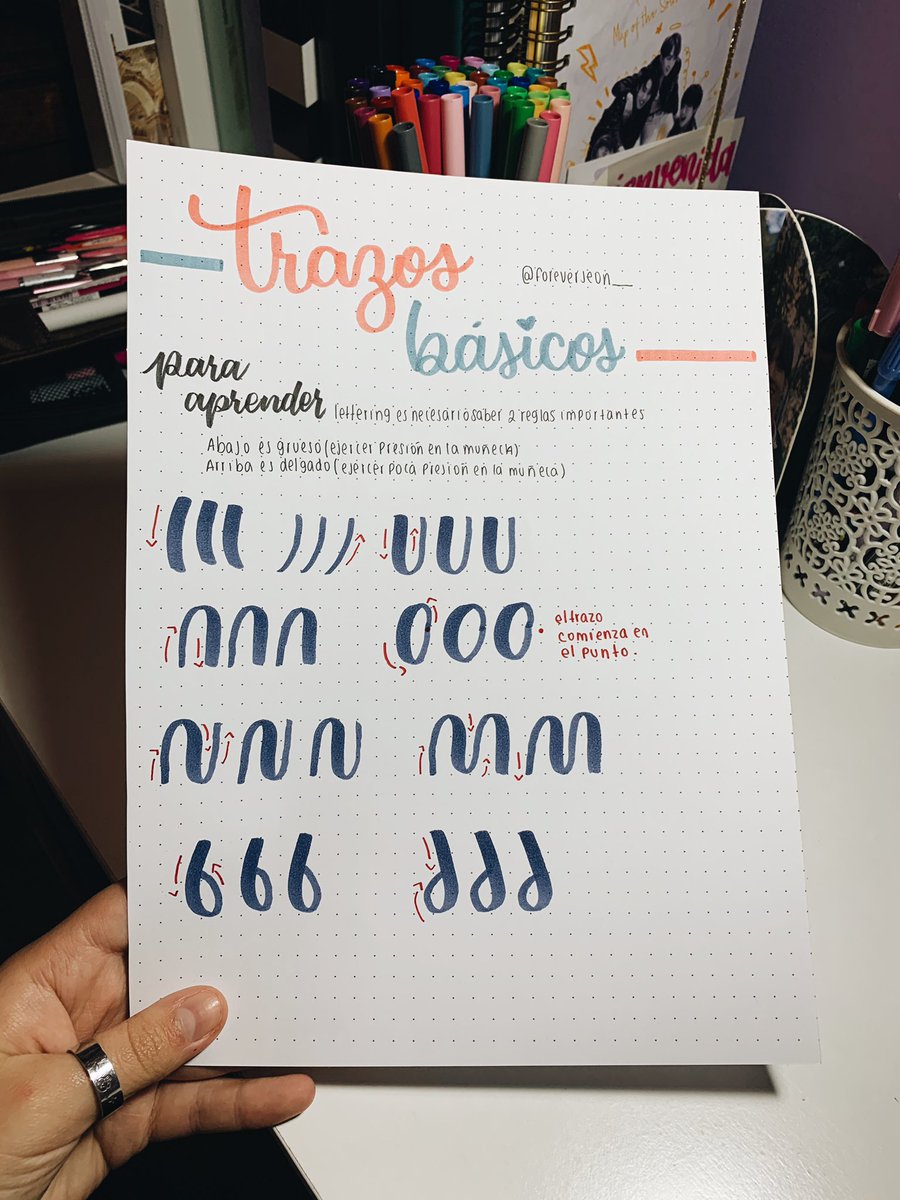 Map of the Soul
Bienvenida
Trazos
@foreverjeon__
básicos
para
aprender lettering es necesario saber 2 reglas importantes
Abajo es grueso (ejercer presión en la muñeca)
Arriba es delgado (ejercer poca presion en la muñeca)
el trazo
comienza en
el punto.